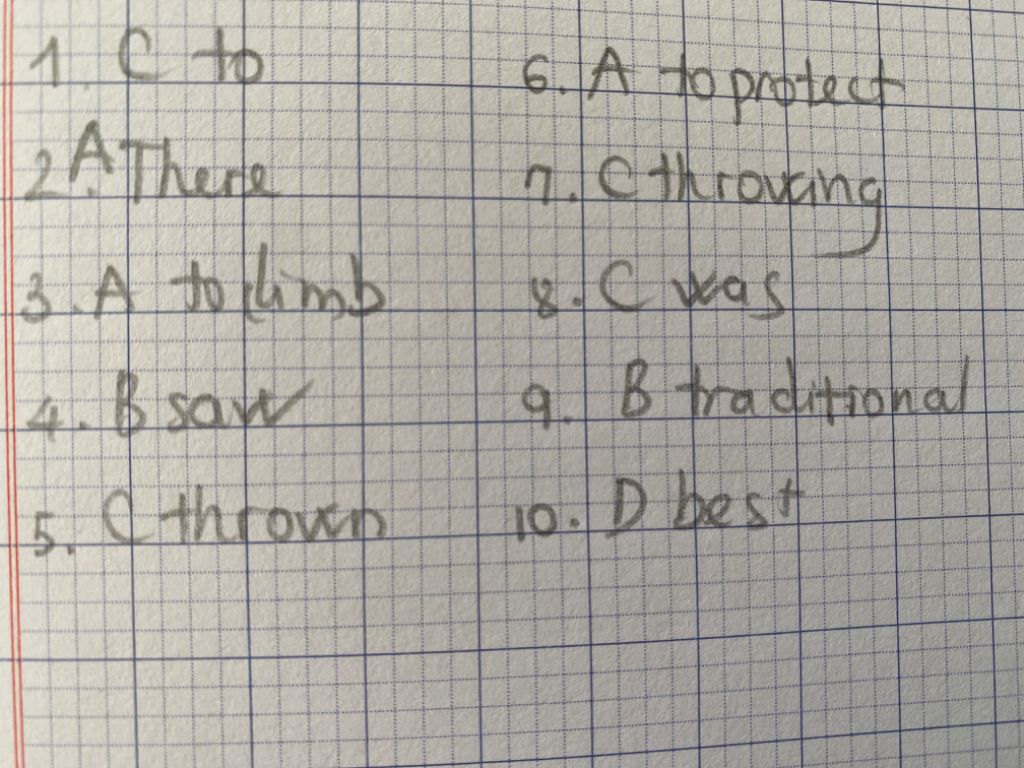 1. C to
2. A There
3. A to climb
4. B saw
5. C thrown
6. A to protect
7. C throwing
8. C was
9. B traditional
10. D best